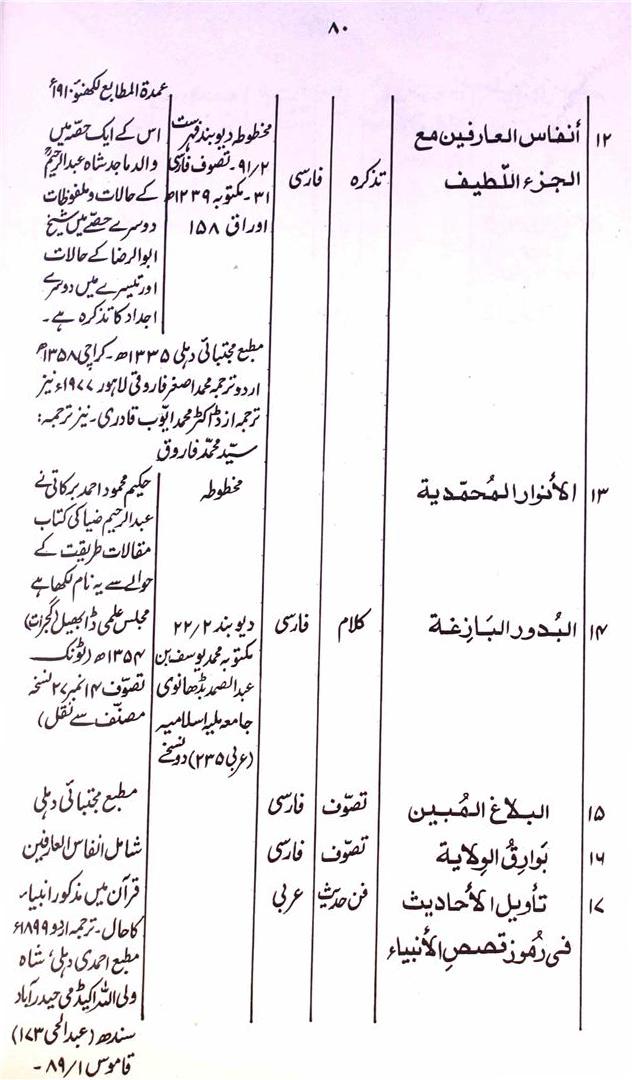 ۸۰
عمدة المطابع لکھنؤ ۱۹۱۰ء
۱۲ أنفاس العارفین مع تذکرہ فارسی مخطوطہ دیوبند فہرست اس کے ایک حصّہ میں
الجزء اللّطیف ۹۱/۲ ۔ تصوف فارسی والد ماجد شاہ عبدالرحیمؒ
۳۱ ۔ مکتوبہ ۱۲۳۹ھ کے حالات و ملفوظات
اوراق ۱۵۸ دوسرے حصّے میں شیخ
ابوالرضا کے حالات
اور تیسرے میں دوسرے
اجداد کا تذکرہ ہے ۔
مطبع مجتبائی دہلی ۱۳۳۵ھ ۔ کراچی ۱۳۵۸ھ
اردو ترجمہ محمد اصغر فاروقی لاہور ۱۹۷۷ء نیز
ترجمہ از ڈاکٹر محمد ایّوب قادری ۔ نیز ترجمہ :
سیّد محمّد فاروق
۱۳ الأنوار المُحمّدیة مخطوطہ حکیم محمود احمد برکاتی نے
عبدالرحیم ضیا کی کتاب
مقالات طریقت کے
حوالے سے یہ نام لکھا ہے
۱۴ البُدور البَازِغة کلام فارسی دیوبند ۲۲/۲ مجلس علمی ڈابھیل (گجرات)
مکتوبہ محمد یوسف بن ۱۳۵۴ھ (ٹونک
عبدالصمد بڈھانوی تصوّف ۱۴ نمبر ۲۷ نسخہ
جامعہ ملیہ اسلامیہ مصنّف سے نقل)
(عربی ۲۳۵) دو نسخے
۱۵ البلاغ المُبین تصوّف فارسی مطبع مجتبائی دہلی
۱۶ بَوارِقُ الوِلایة تصوّف فارسی شامل انفاس العارفین
۱۷ تأویل الأحادیث فن حدیث عربی قرآن میں مذکور انبیاء
فی رُموز قصصِ الأنبیاء کا حال ۔ ترجمہ اردو ۱۸۹۹ء
مطبع احمدی دہلی، شاہ
ولی اللہ اکیڈمی حیدرآباد
سندھ (عبدالحی ۱۷۳)
قاموس ۸۹/۱ ۔